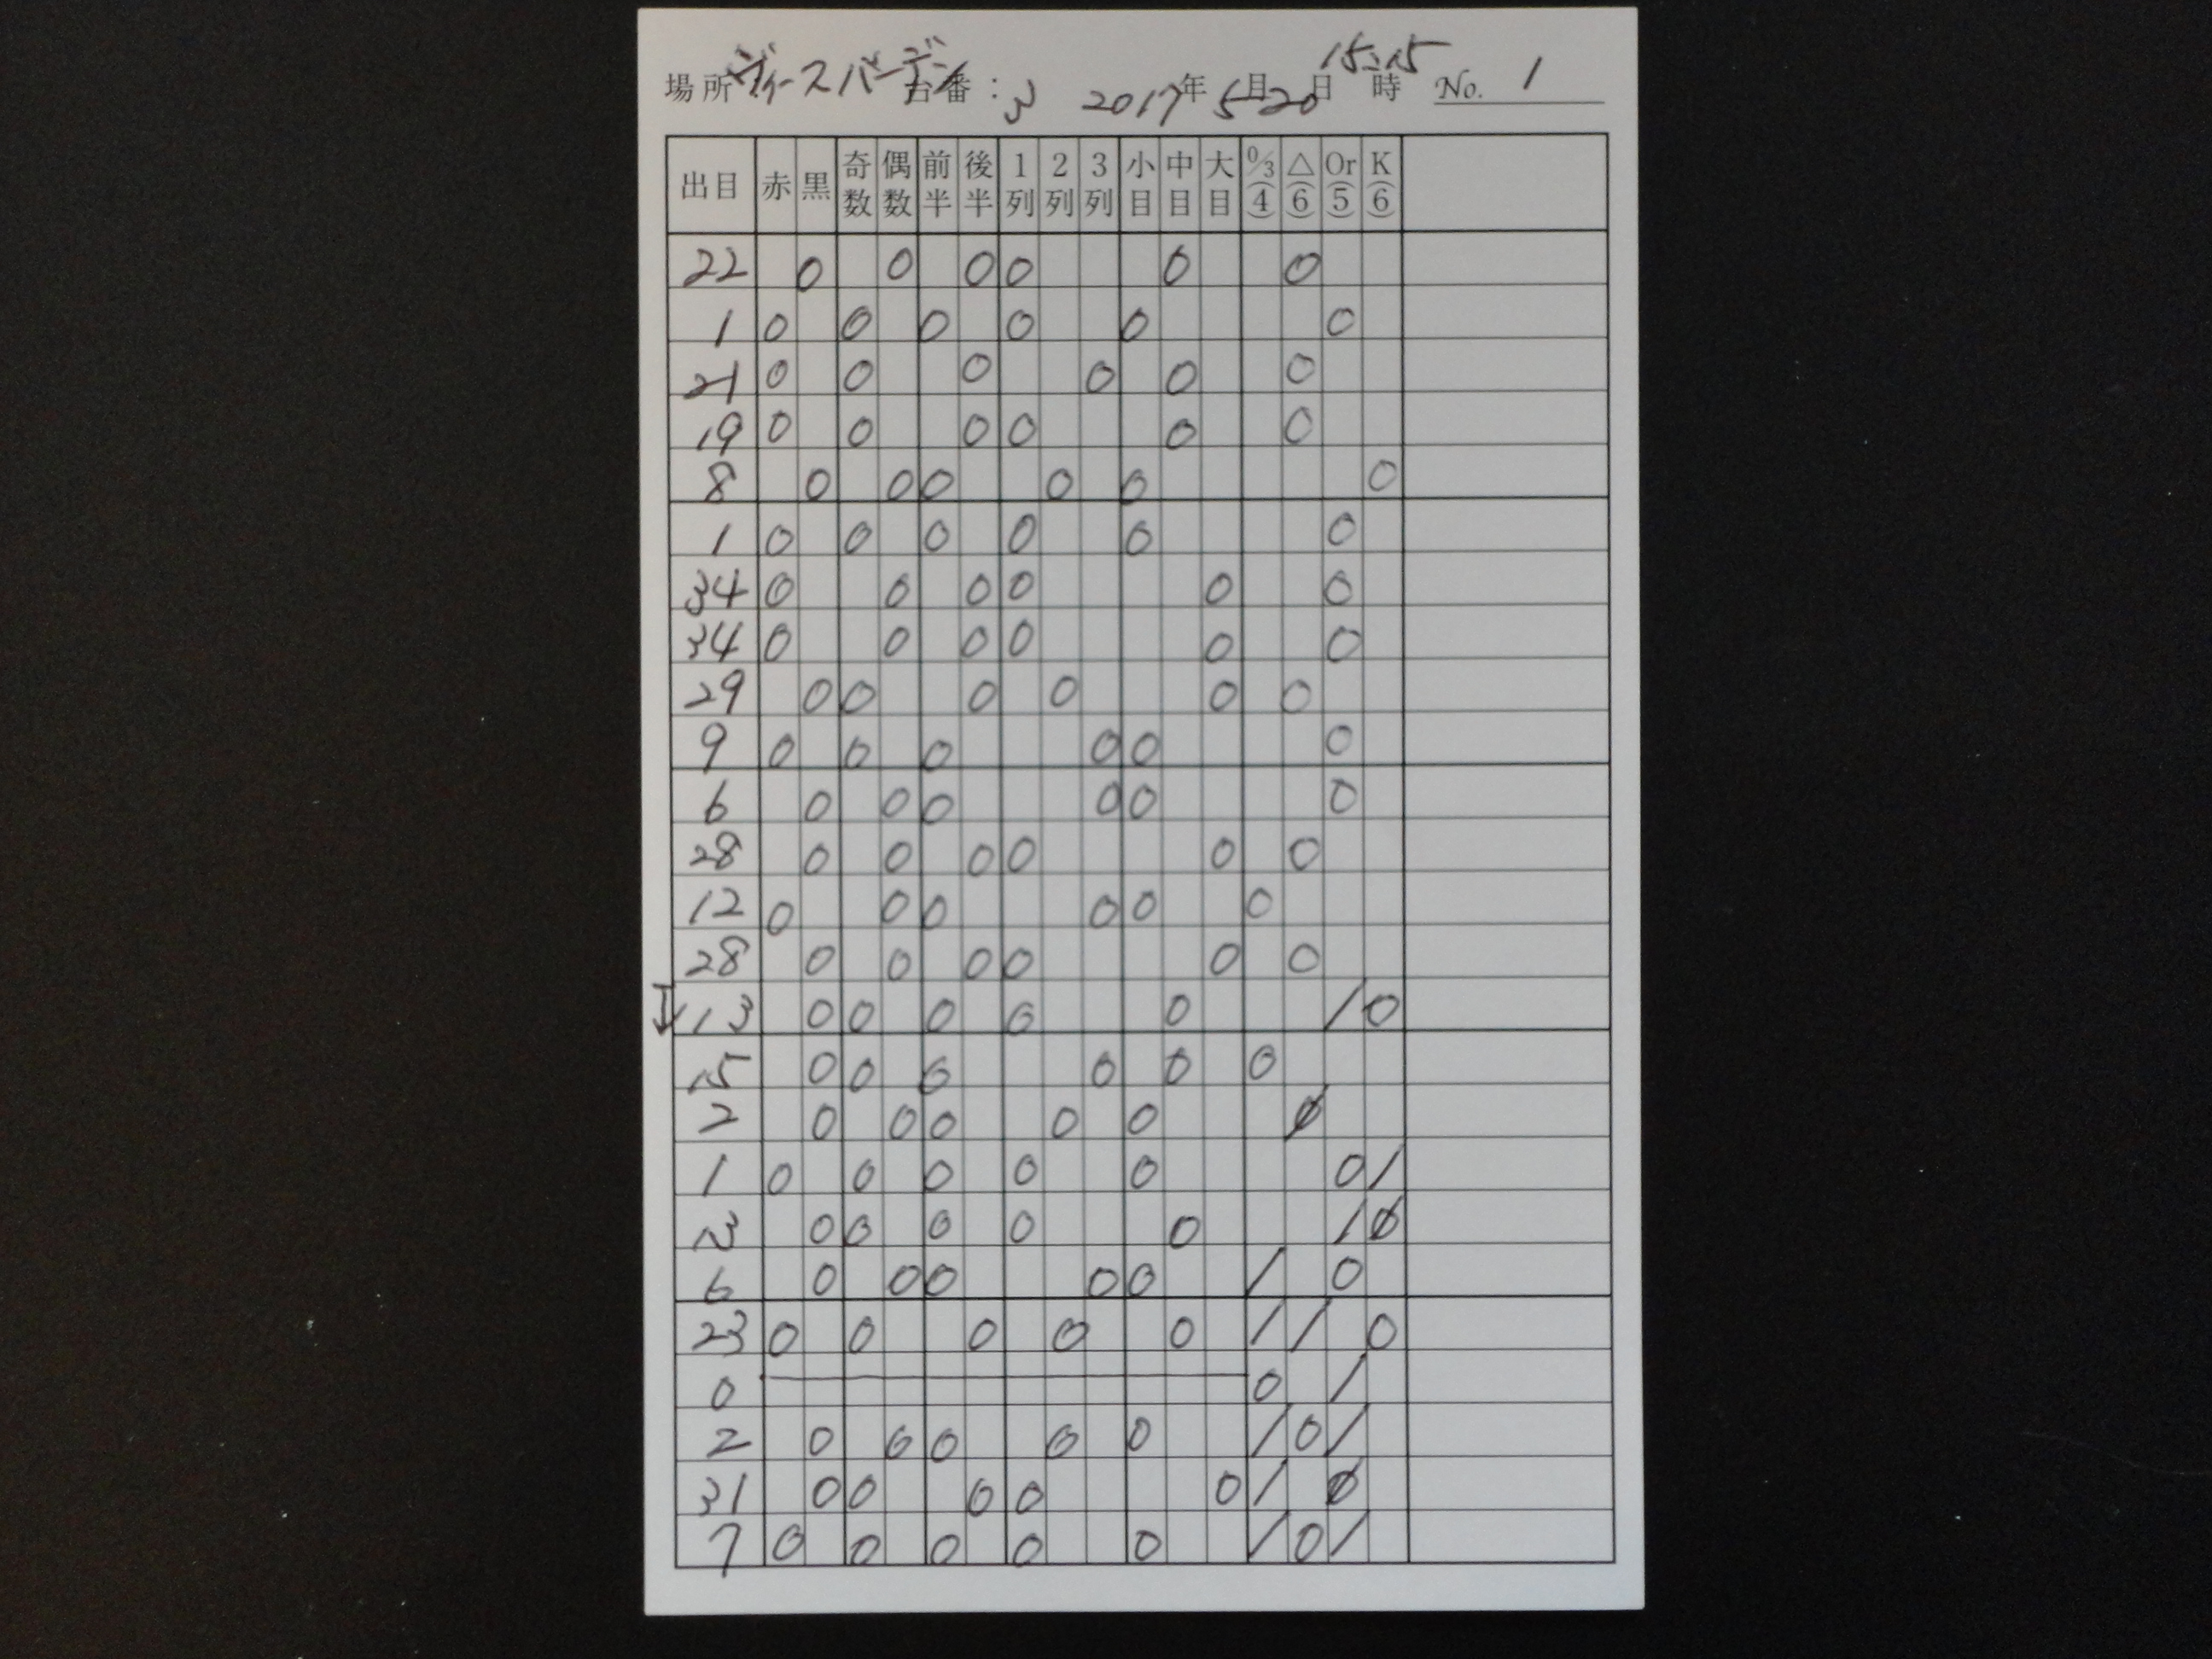 場所 ヴィースバーデン 台番：3 2017年 5月 20日 15:15時 No. 1
出目 赤 黒 奇数 偶数 前半 後半 1列 2列 3列 小目 中目 大目 0/3(4) △(6) Or(5) K(6)
22 0 0 0 0 0 0
1 0 0 0 0 0 0
21 0 0 0 0 0 0
19 0 0 0 0 0 0
8 0 0 0 0 0 0
1 0 0 0 0 0 0
34 0 0 0 0 0 0
34 0 0 0 0 0 0
29 0 0 0 0 0 0
9 0 0 0 0 0 0
6 0 0 0 0 0 0
28 0 0 0 0 0 0
12 0 0 0 0 0 0
28 0 0 0 0 0 0
13 0 0 0 0 0 / 0
15 0 0 0 0 0 0
2 0 0 0 0 0 0
1 0 0 0 0 0 0 /
13 0 0 0 0 0 / 0
6 0 0 0 0 0 / 0
23 0 0 0 0 0 / / 0
0 0 /
2 0 0 0 0 0 / 0 /
31 0 0 0 0 0 / 0
7 0 0 0 0 0 / 0 /